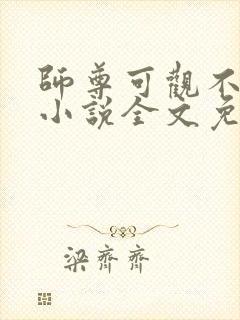 師尊可觀不
小說全文免
梁齊齊